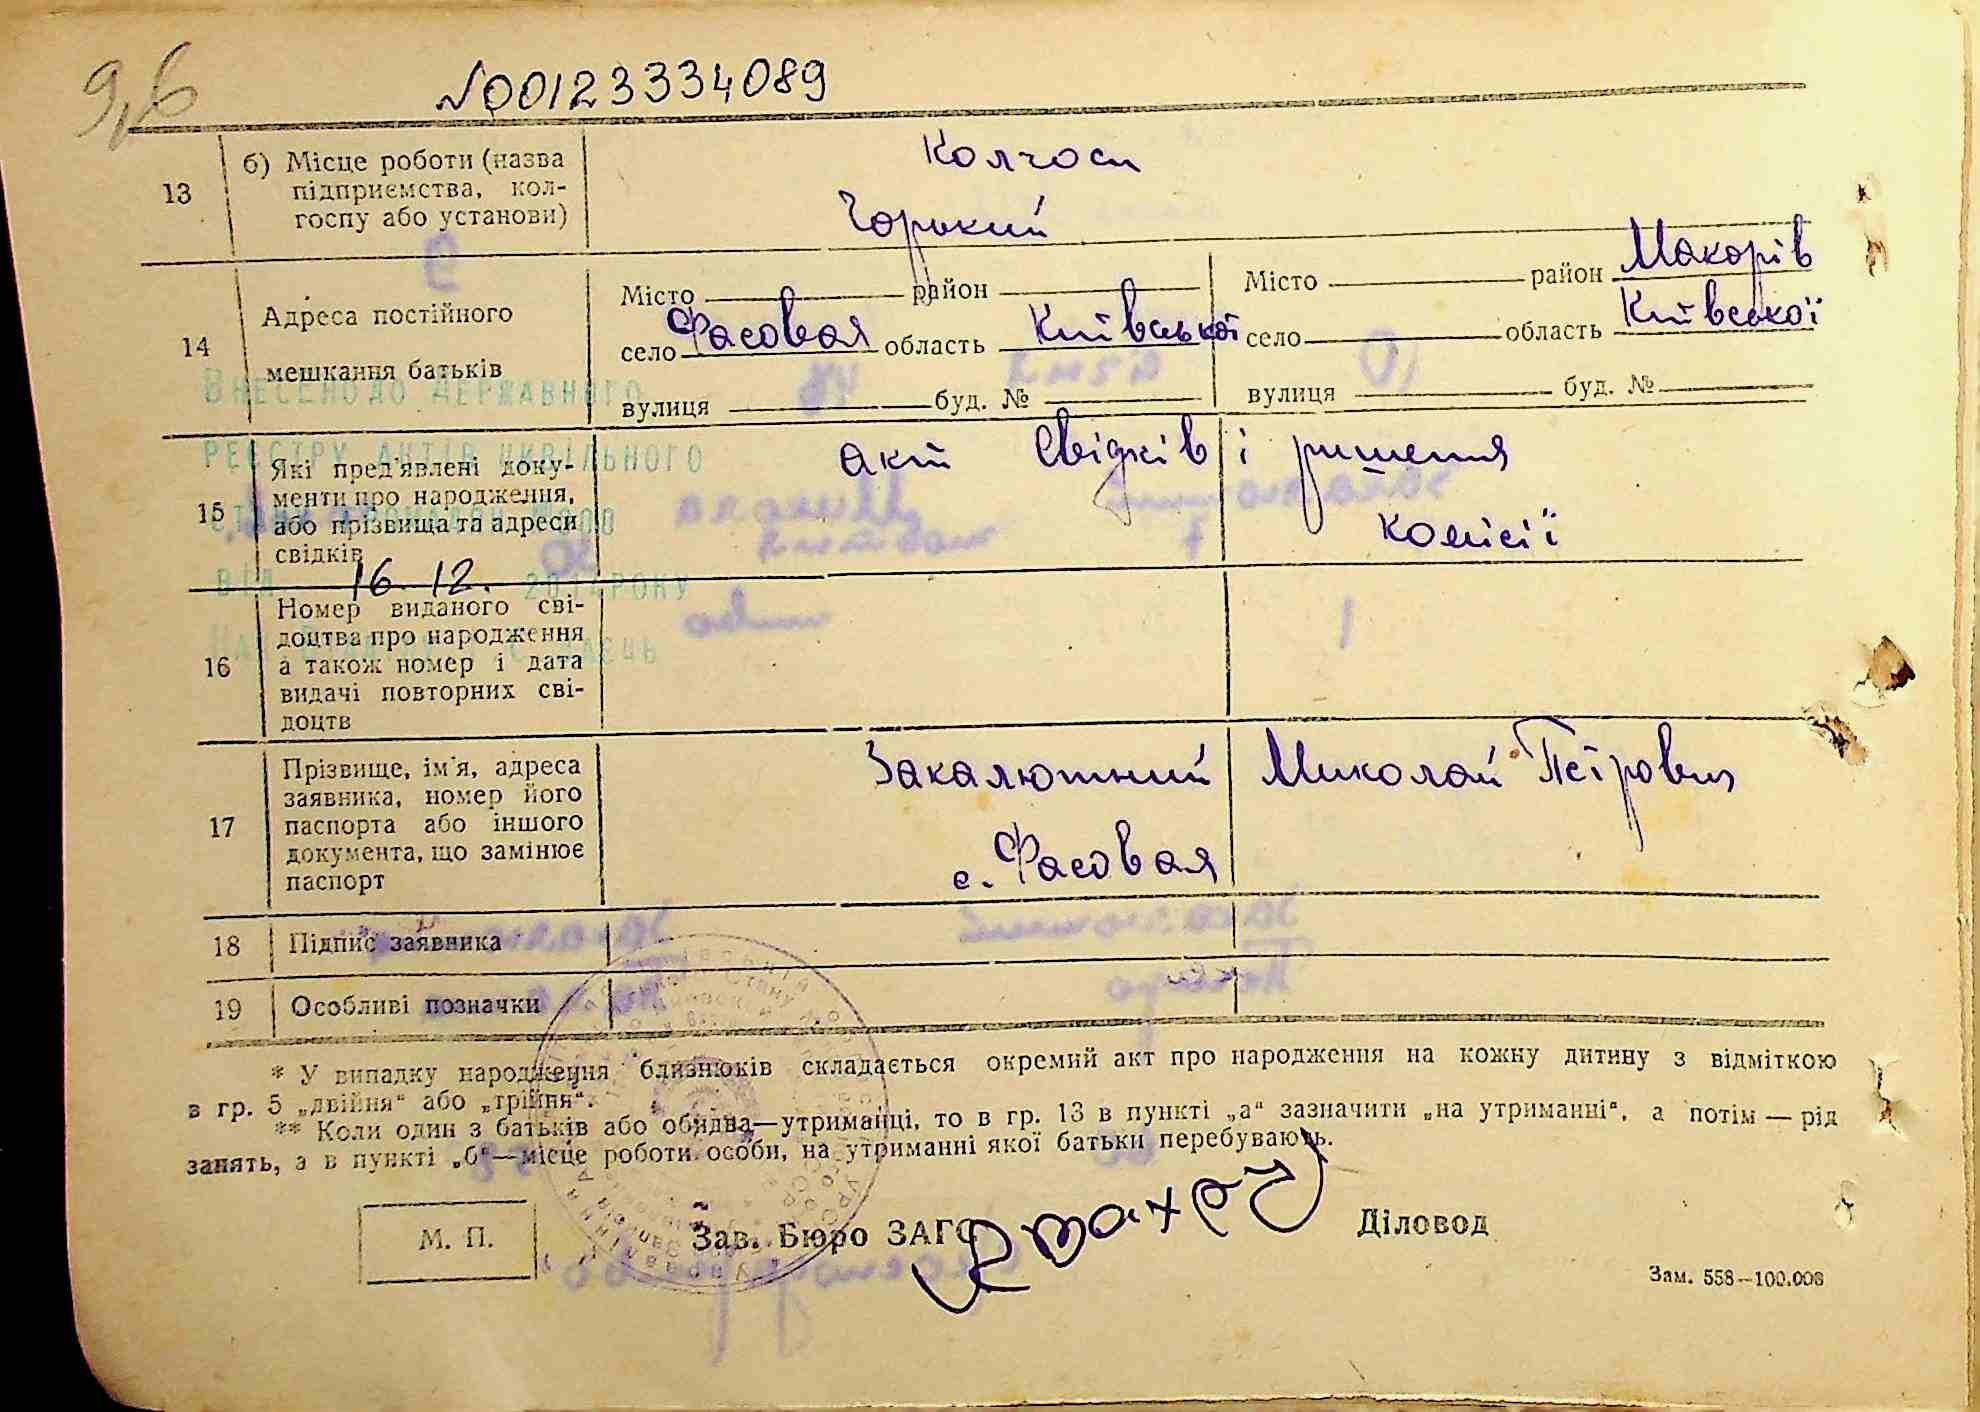 9,6
№00123334089
13
б) Місце роботи (назва
підприємства, кол-
госпу або установи)
Колгосп
Горький
14
Адреса постійного
мешкання батьків
Місто район
село Фасовая область Київської
вулиця буд. №
Місто район Макарів
село область Київської
вулиця буд. №
ВНЕСЕНО ДО ДЕРЖАВНОГО
РЕЄСТРУ АКТІВ ЦИВІЛЬНОГО
ВІД 16.12. 2014РОКУ
15
Які пред'явлені доку-
менти про народження,
або прізвища та адреси
свідків
акт свідків і рішення
комісії
16
Номер виданого сві-
доцтва про народження
а також номер і дата
видачі повторних сві-
доцтв
17
Прізвище, ім'я, адреса
заявника, номер його
паспорта або іншого
документа, що замінює
паспорт
Закалюжний Миколай Петрович
с. Фасовая
18
Підпис заявника
19
Особливі позначки
* У випадку народження близнюків складається окремий акт про народження на кожну дитину з відміткою
в гр. 5 „двійня“ або „трійня“.
** Коли один з батьків або обидва—утриманці, то в гр. 13 в пункті „а“ зазначити „на утриманні“, а потім — рід
занять, а в пункті „б“—місце роботи особи, на утриманні якої батьки перебувають.
М. П.
Зав. Бюро ЗАГС
Діловод
Зам. 558—100.000